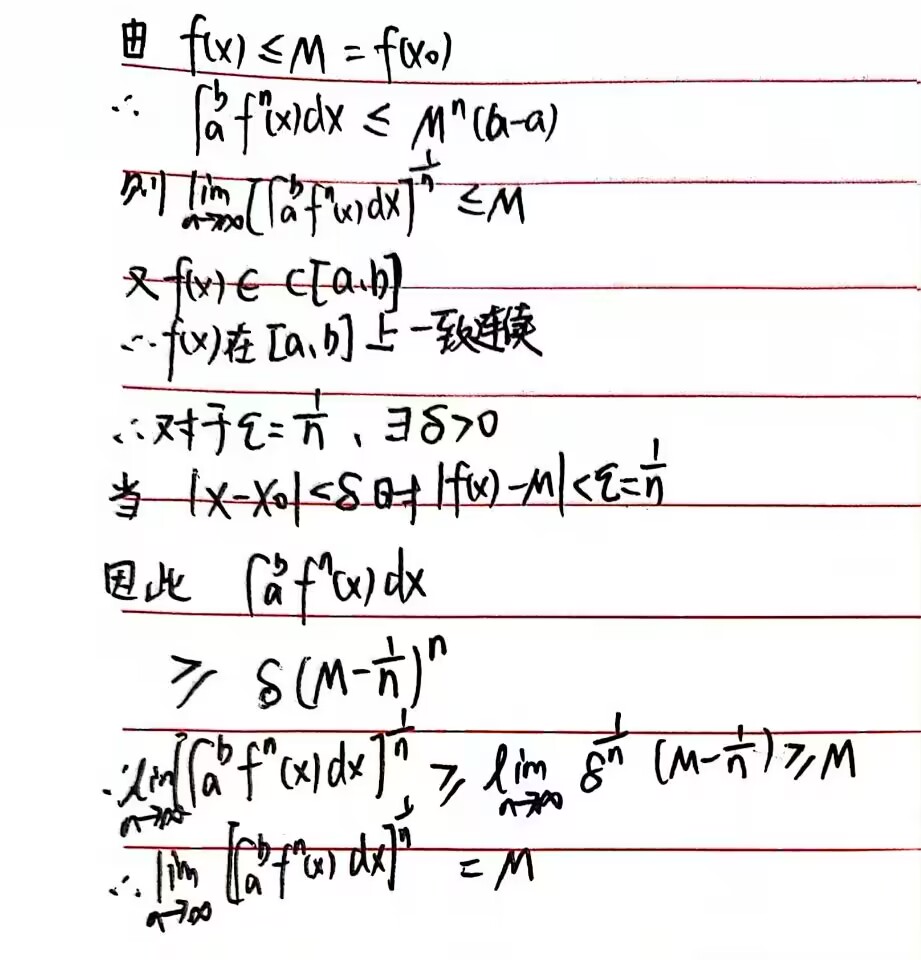 由 f(x) ≤ M = f(x₀)
∴ ∫ₐᵇ fⁿ(x)dx ≤ Mⁿ(b-a)
则 lim_{n→∞} [∫ₐᵇ fⁿ(x)dx]^{1/n} ≤ M
又 f(x) ∈ C[a,b]
∴ f(x)在[a,b]上一致连续
∴ 对于ε=1/n、∃δ>0
当 |x-x₀|<δ时 |f(x)-M|<ε=1/n
因此 ∫ₐᵇ fⁿ(x)dx
≥ δ(M-1/n)ⁿ
∴ lim_{n→∞} [∫ₐᵇ fⁿ(x)dx]^{1/n} ≥ lim_{n→∞} δ^{1/n} (M-1/n) ≥ M
∴ lim_{n→∞} [∫ₐᵇ fⁿ(x)dx]^{1/n} = M